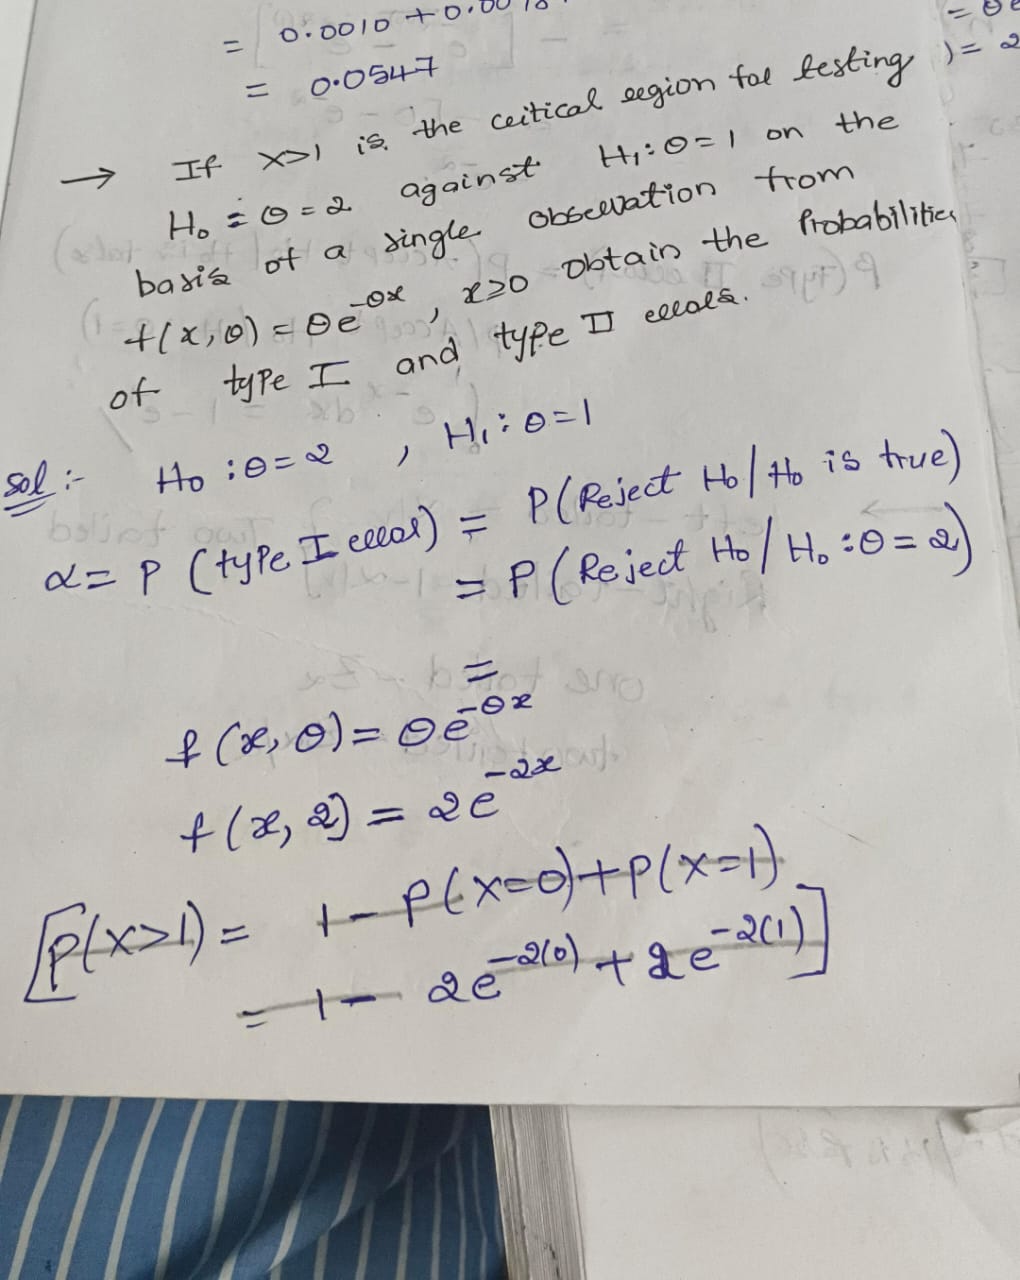 = [0.0010 + 0.00
= 0.0547
→ If X>1 is the critical region for testing
H₀ : θ = 2 against H₁: θ = 1 on the
basis of a single observation from
f(x, θ) = θe^{-θx}, x≥0 obtain the Probabilities
of type I and type II errors.
Sol :- H₀ : θ = 2 , H₁ : θ = 1
α = P (type I error) = P(Reject H₀ / H₀ is true)
= P(Reject H₀ / H₀ : θ = 2)
=
f(x, θ) = θe^{-θx}
f(x, 2) = 2e^{-2x}
[P(X>1) = 1 - P(X=0)+P(X=1)
= 1 - 2e^{-2(0)} + 2e^{-2(1)}]